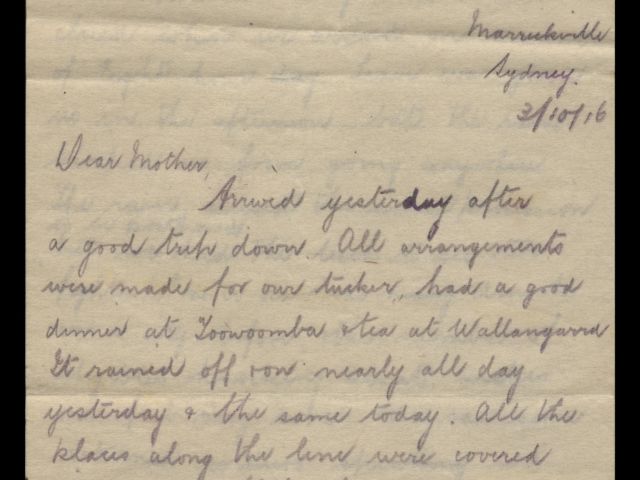 Marrickville
Sydney.
3/10/16
Dear Mother,
Arrived yesterday after
a good trip down. All arrangements
were made for our tucker, had a good
dinner at Toowoomba & tea at Wallangarra
It rained off & on nearly all day
yesterday & the same today. All the
places along the line were covered